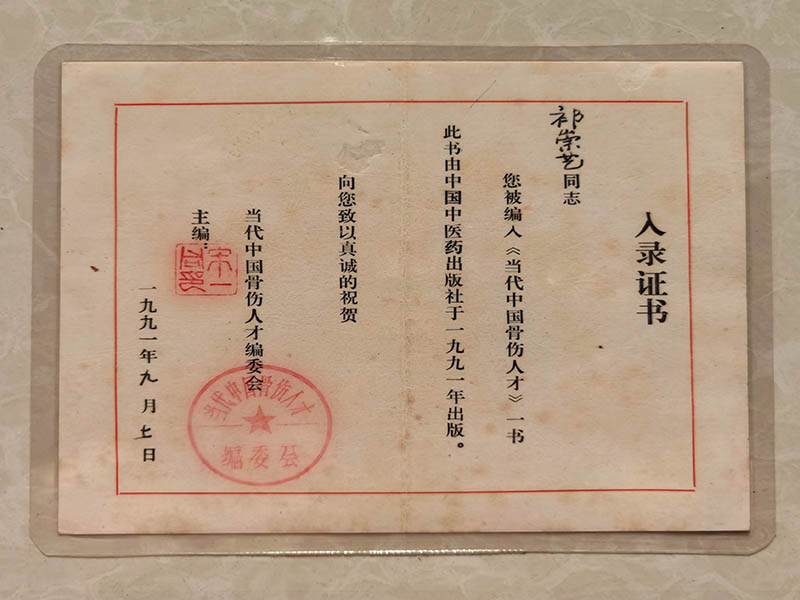 入录证书
祁崇艺同志
您被编入《当代中国骨伤人才》一书
此书由中国中医药出版社于一九九一年出版。
向您致以真诚的祝贺
当代中国骨伤人才编委会
主编：
一九九一年九月七日
当代中国骨伤人才
编委会